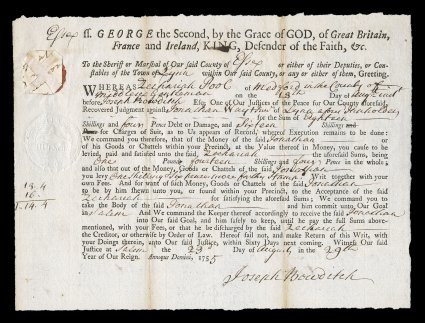 Essex ss. GEORGE the Second, by the Grace of GOD, of Great Britain,
France and Ireland, KING, Defender of the Faith, &c.
To the Sheriff or Marshal of Our said County of Essex or either of their Deputies, or Con-
stables of the Town of Lynn within Our said County, or any or either of them, Greeting.
WHEREAS Zechariah Pool of Medford in the County of
Middlesex Gentleman on the 13th Day of August
before Joseph Bowditch Esq; One of Our Justices of the Peace for Our County aforesaid,
Recovered Judgment against Jonathan of Lynn
for the Sum of Eighteen
Shillings and four Pence Debt or Damage, and Sixteen Shillings and
for Charges of Suit, as to Us appears of Record, whereof Execution remains to be done:
We command you therefore, that of the Money of the said Jonathan or
of his Goods or Chattels within your Precinct, at the Value thereof in Money, you cause to be
levied, paid and satisfied unto the said Zechariah the aforesaid Sums, being
One Fourteen Shillings and four Pence in the whole;
and also that out of the Money, Goods or Chattels of the said Jonathan
you levy more for this Writ, together with your
own Fees. And for want of such Money, Goods or Chattels of the said Jonathan
to be by him shewn unto you, or found within your Precinct, to the Acceptance of the said
Zechariah for satisfying the aforesaid Sums; We command you to
take the Body of the said Jonathan and him commit unto Our Goal
in Salem And We command the Keeper thereof accordingly to receive the said Jonathan
into Our said Goal, and him safely to keep, until he pay the full Sums above-
mentioned, with your Fees, or that he be discharged by the said Zechariah
the Creditor, or otherwise by Order of Law. Hereof fail not, and make Return of this Writ, with
your Doings therein, unto Our said Justice, within Sixty Days next coming. Witness Our said
Justice at Salem the 23 Day of August in the 29th
Year of Our Reign. Annoque Domini, 1755
Joseph Bowditch